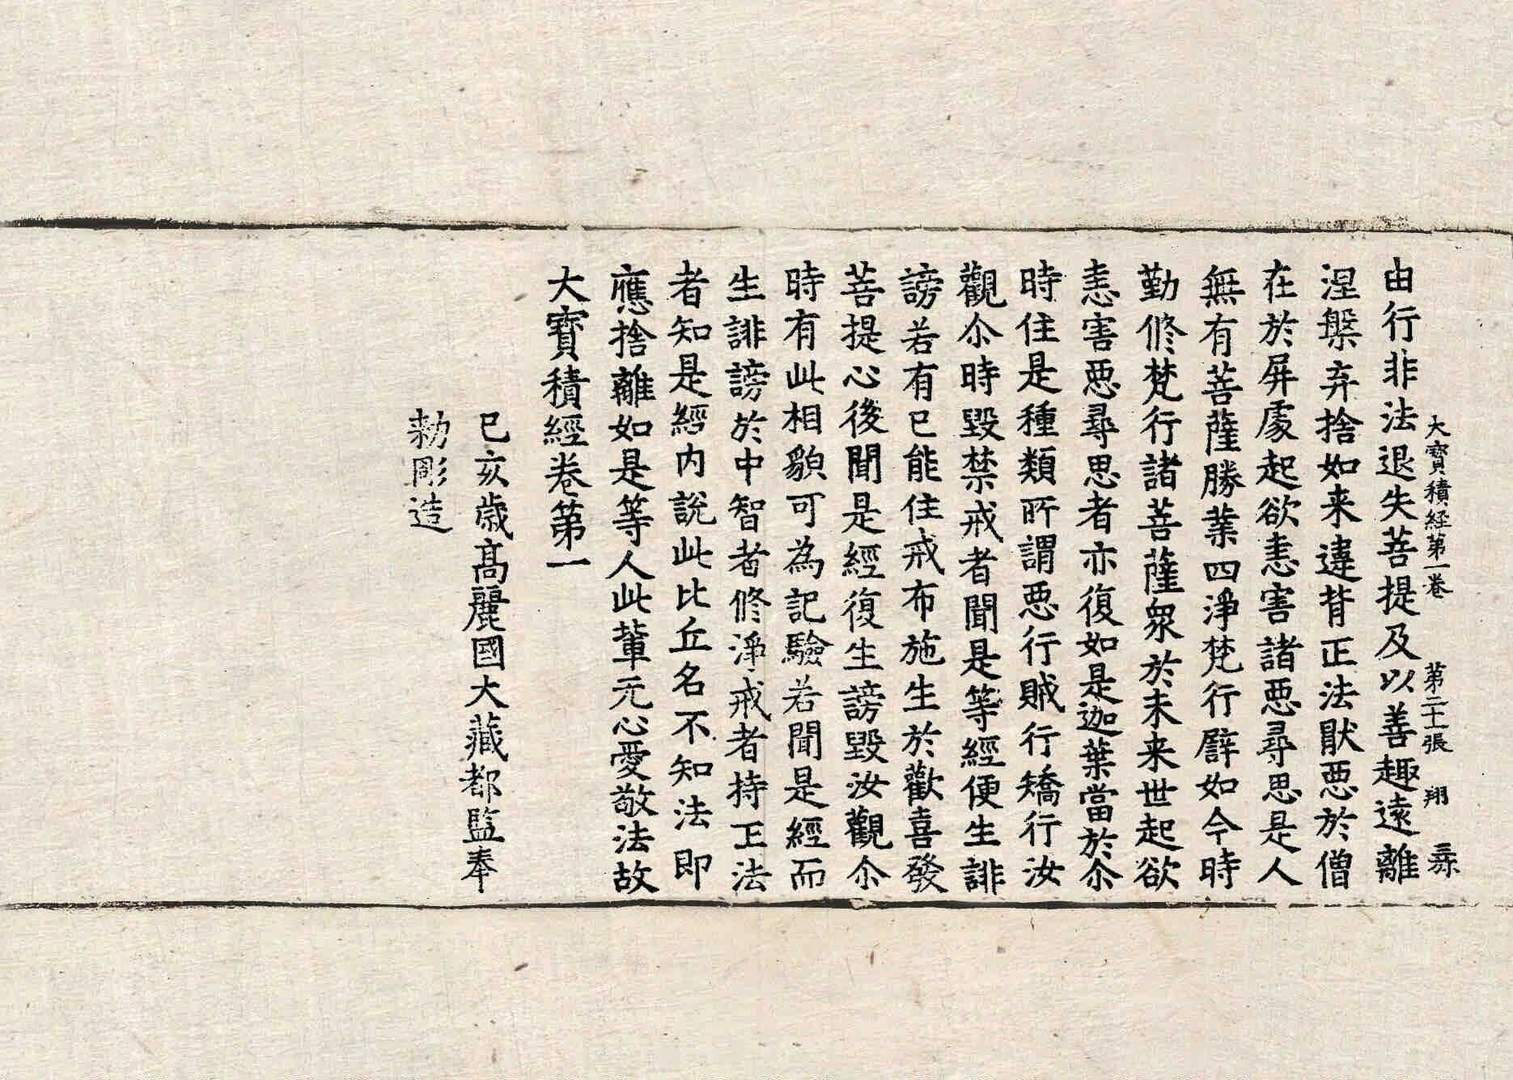 大寶積經第一卷 第二十張 翔
由行非法退失菩提及以善趣遠離
涅槃弃捨如来違背正法猒惡於僧
在於屏處起欲恚害諸惡尋思是人
無有菩薩勝業四淨梵行譬如今時
勤修梵行諸菩薩衆於未来世起欲
恚害惡尋思者亦復如是迦葉當於尒
時住是種類所謂惡行賊行矯行汝
觀尒時毀禁戒者聞是等經便生誹
謗若有已能住戒布施生於歡喜發
菩提心後聞是經復生謗毀汝觀尒
時有此相貌可為記驗若聞是經而
生誹謗於中智者修淨戒者持正法
者知是經内說此比丘名不知法即
應捨離如是等人此輩无心愛敬法故
大寶積經卷第一
已亥歲高麗國大藏都監奉
勑彫造